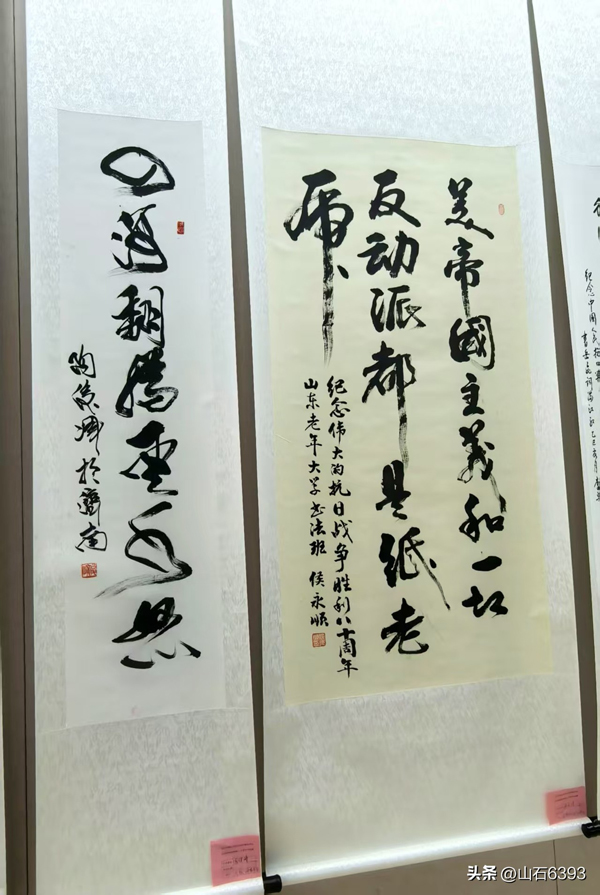 纪念中国人民抗日
美帝國主義和一切
反动派都是紙老
虎
纪念伟大的抗日战争胜利八十周年
山东老年大学书法班 侯永顺
四海翻騰雲水怒
於濟南
头条 @山石6393